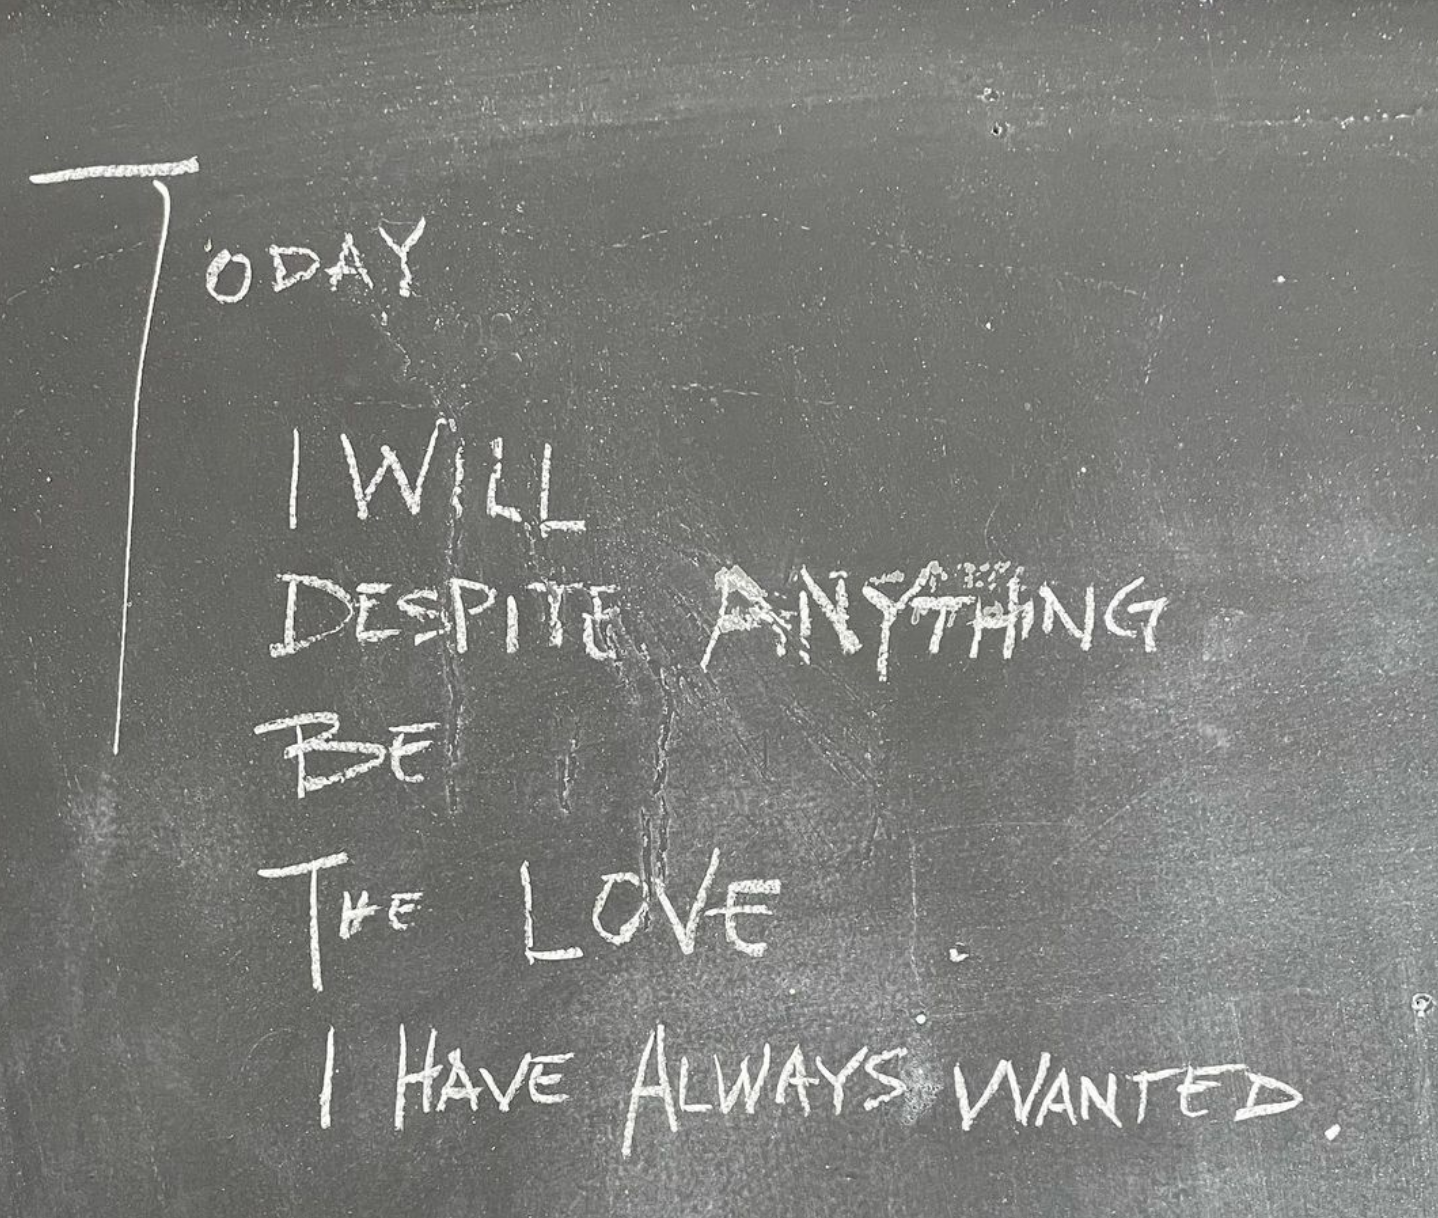 TODAY
I WILL
DESPITE ANYTHING
BE
THE LOVE
I HAVE ALWAYS WANTED.